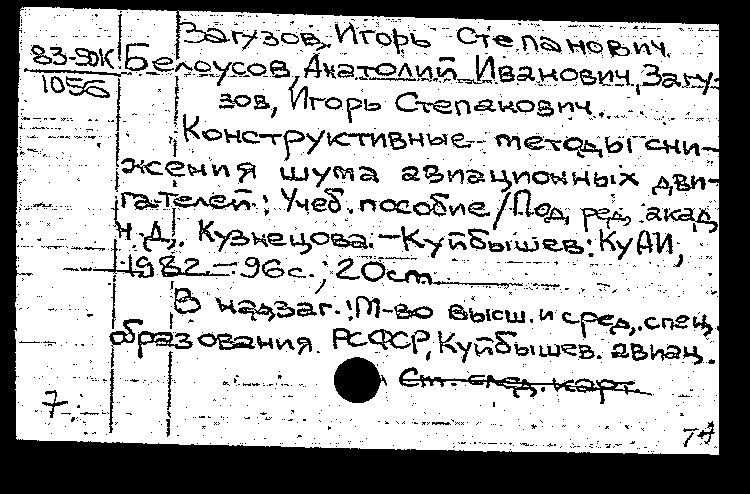 Загузов, Игорь Степанович.
83-50К Белоусов, Анатолий Иванович, Загу-
1056 зов, Игорь Степанович.
Конструктивные методы сни-
жения шума авиационных дви-
гателей: Учеб. пособие/Под ред. акад.
Н.Д. Кузнецова. - Куйбышев: КуАИ,
1982. - 96с.; 20см.
В надзаг.: М-во высш. и сред. спец.
образования РСФСР, Куйбышев. авиац.
См. след. карт.
7